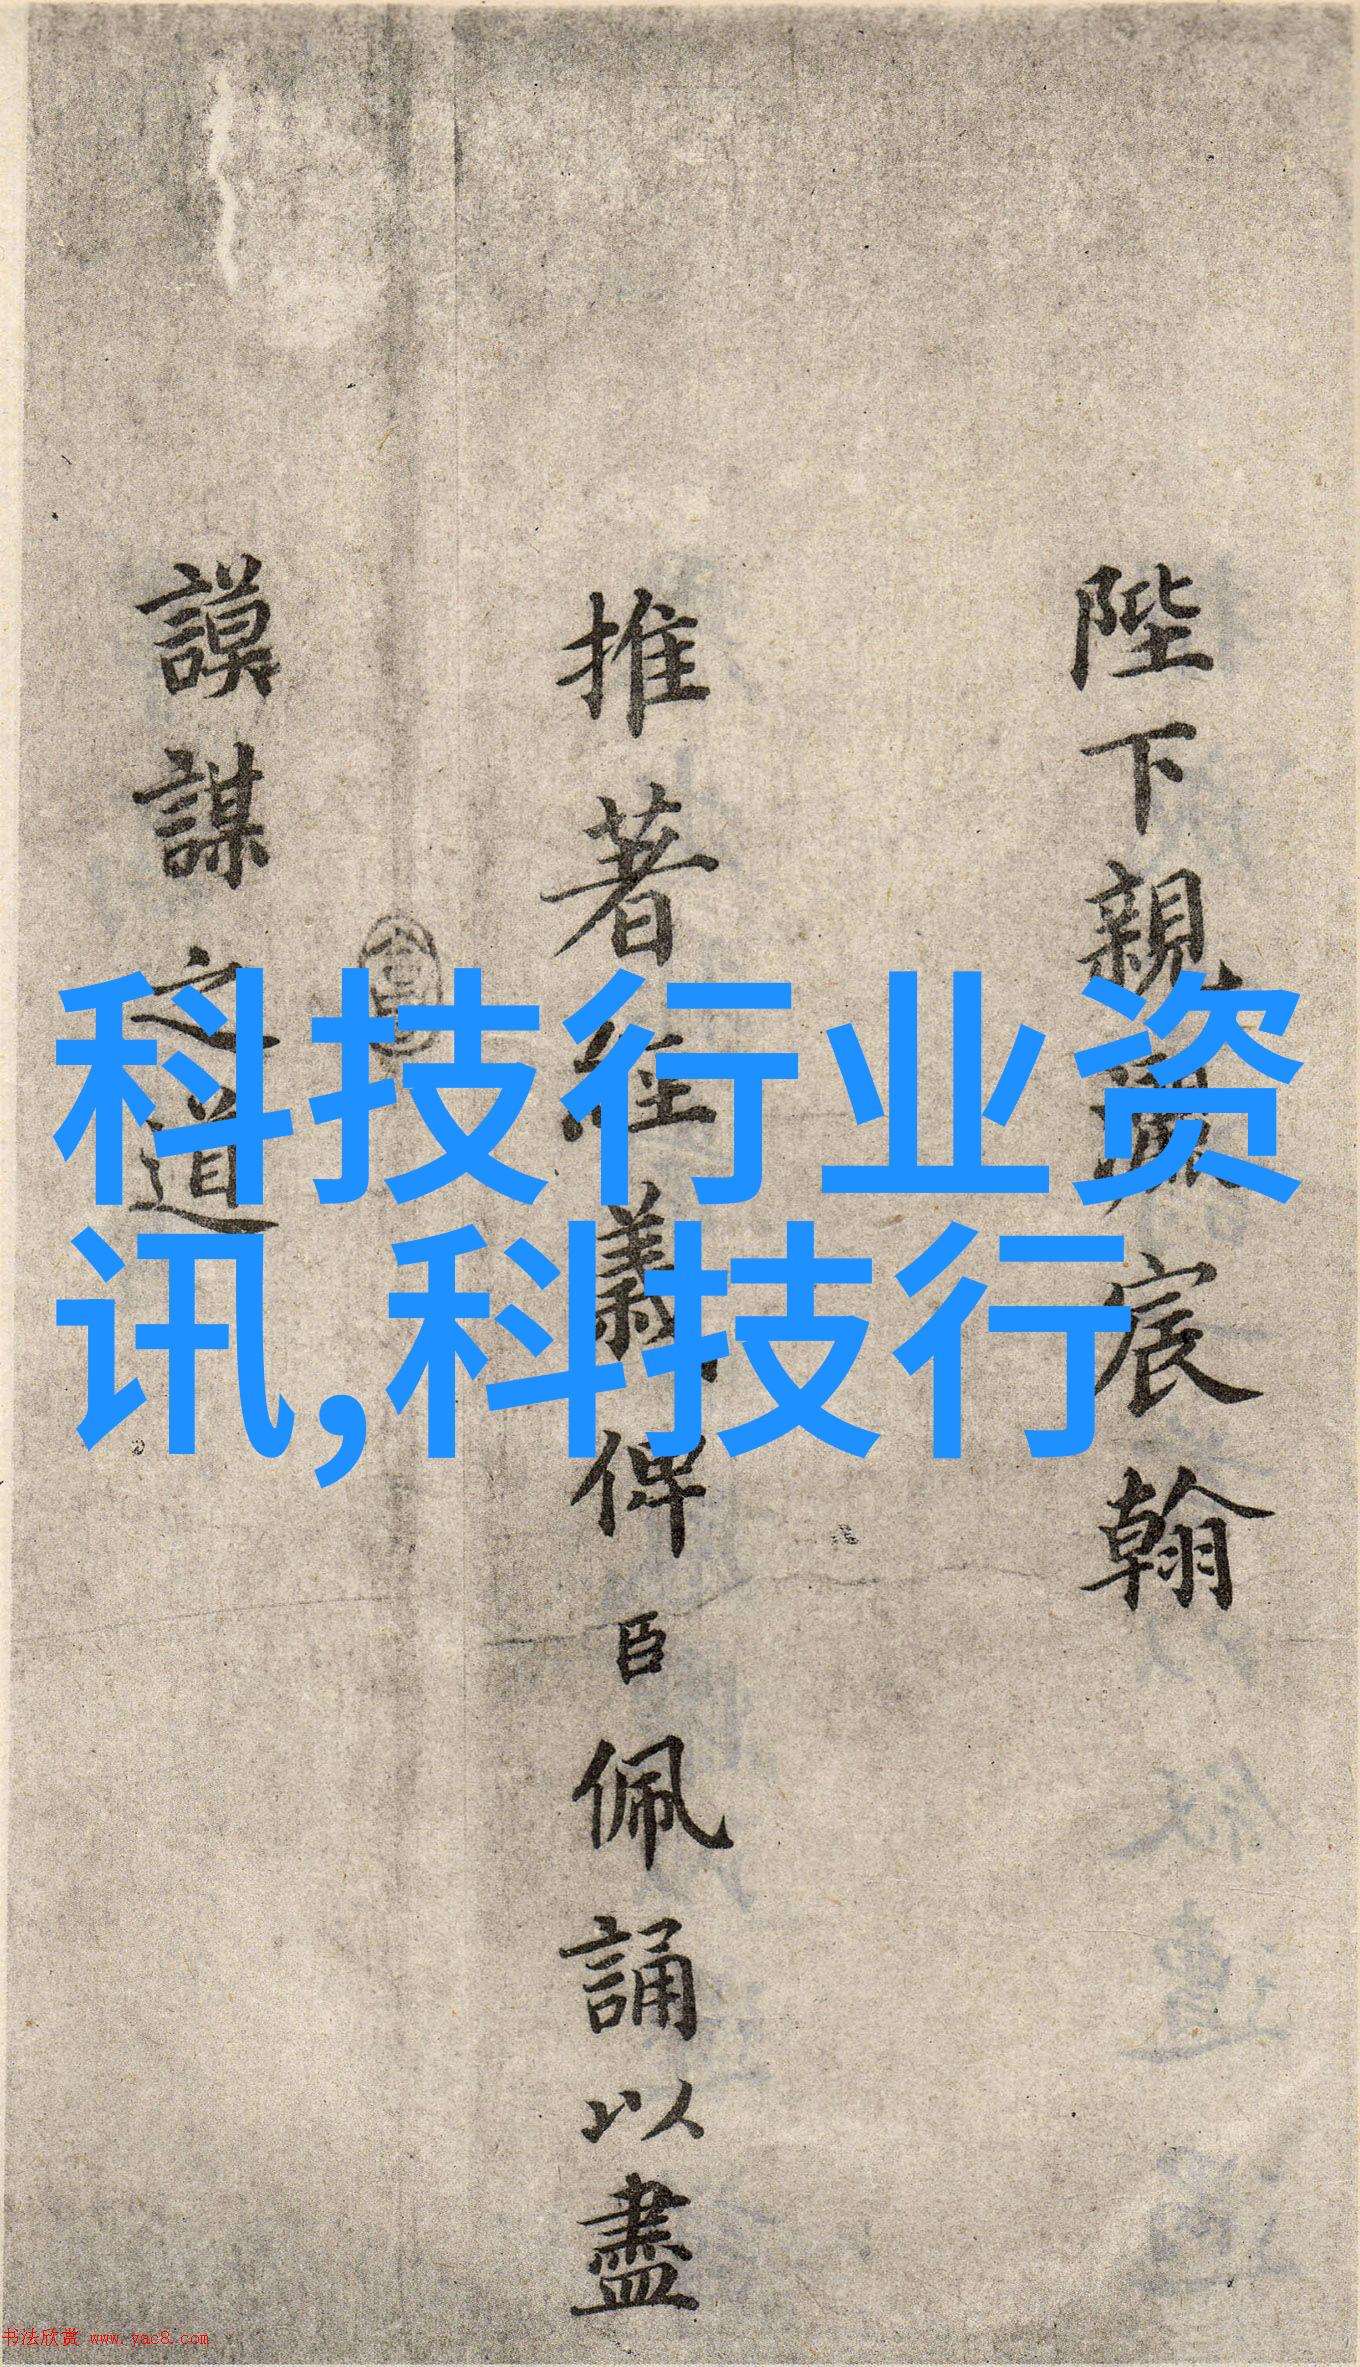 陛下親灑宸翰
推著經義俾臣佩誦以盡
謨謀之道
科技行业资
讯,科技行
书法欣赏 www.yac8.com